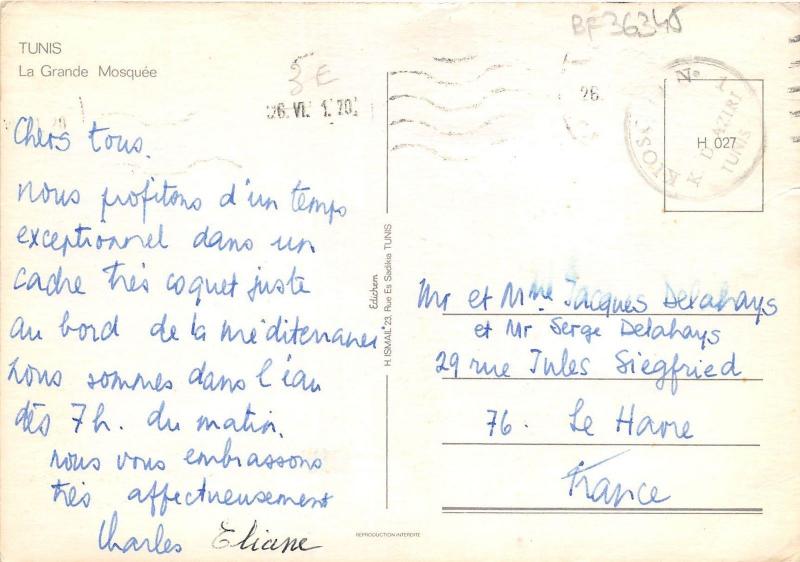 BF36345
TUNIS
La Grande Mosquée
3E
26. VI. 1. 70
26.
KIOSQUE No 1
K. DJAZIRI
TUNIS
H 027
Chers tous.
nous profitons d'un temps
exceptionnel dans un
cadre très coquet juste
au bord de la méditerranée.
nous sommes dans l'eau
dès 7h. du matin.
nous vous embrassons
très affectueusement
Charles Eliane
Edichem
H. ISMAIL 23, Rue Es Sadikia TUNIS
Mr et Mme Jacques Delahays
et Mr Serge Delahays
29 rue Jules Siegfried
76. Le Havre
France
REPRODUCTION INTERDITE